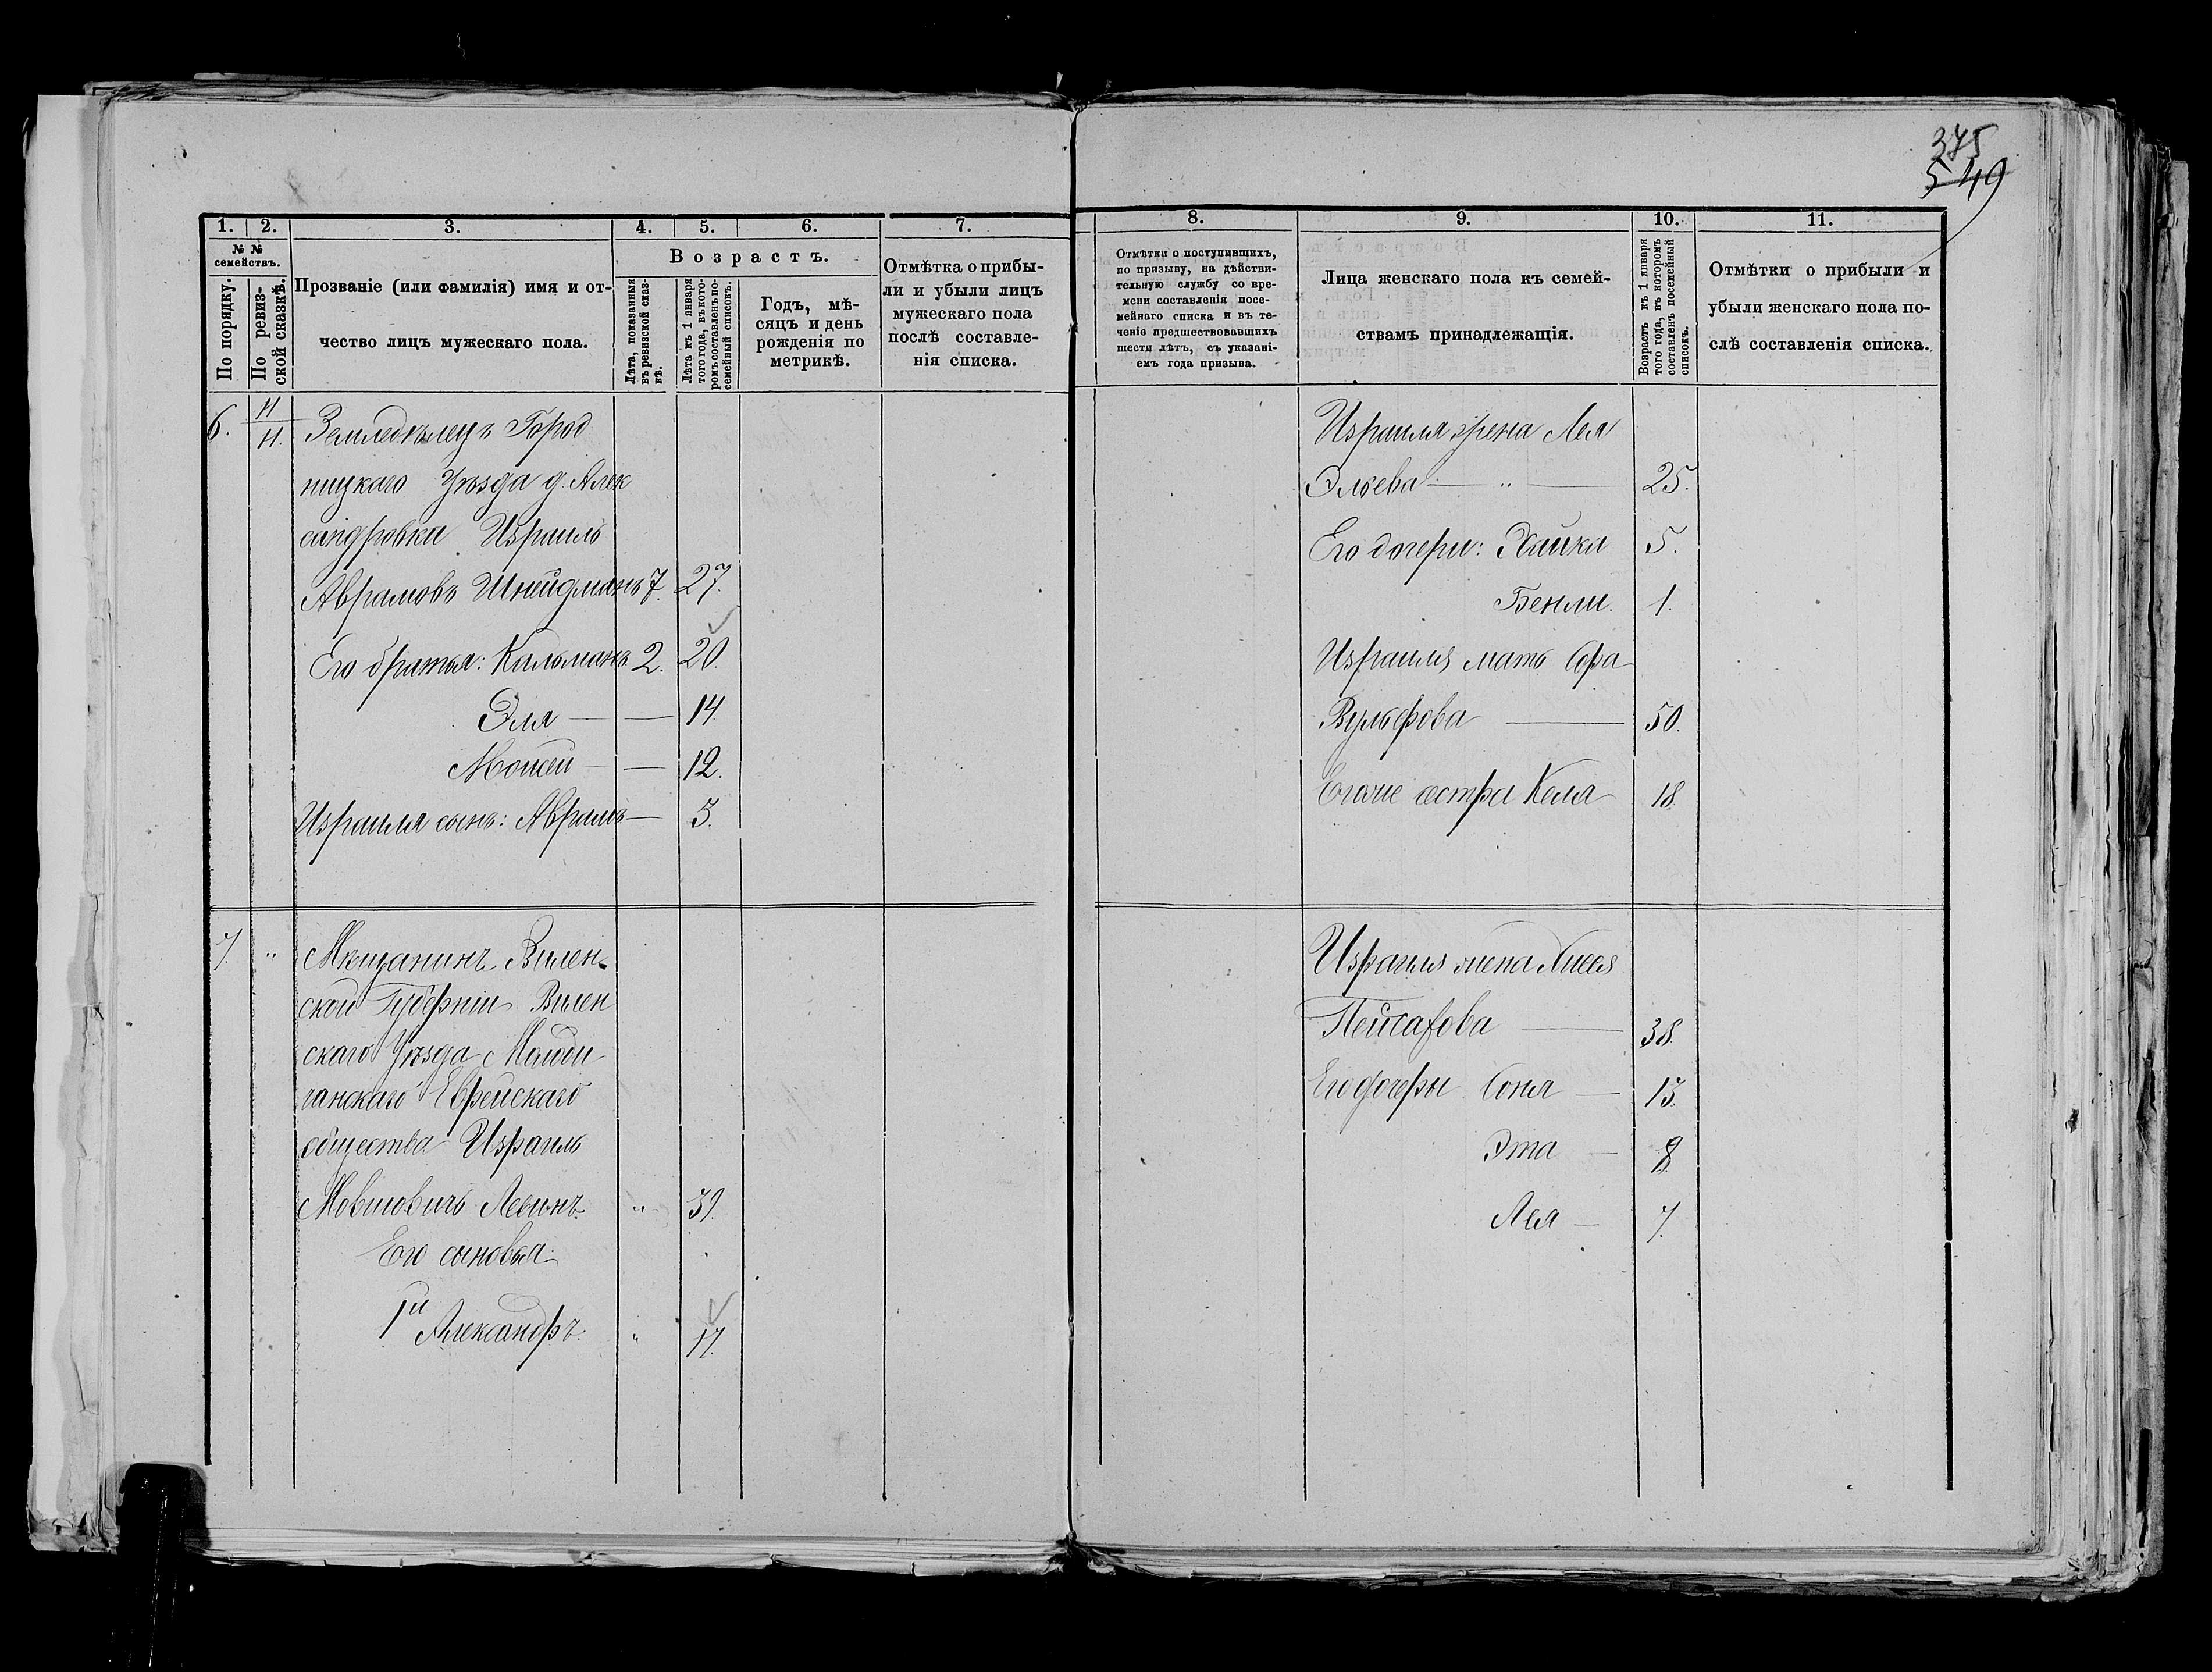 375
549
1.
2.
3.
4.
5.
6.
7.
№ №
семействъ.
По порядку.
По ревиз-
ской сказкѣ.
Прозваніе (или фамилія) имя и от-
чество лицъ мужескаго пола.
Возрастъ.
Лѣта, показанныя
въ ревизской сказ-
кѣ.
Лѣта къ 1 января
того года, въ кото-
ромъ составленъ по-
семейный списокъ.
Годъ, мѣ-
сяцъ и день
рожденія по
метрикѣ.
Отмѣтка о прибы-
ли и убыли лицъ
мужескаго пола
послѣ составле-
нія списка.
6.
11
11.
Земледѣлецъ Город
ницкаго Уѣзда д. Алек
сандровка Израиль
Аврамовъ Шнейдманъ 7. 27.
Его братья: Кальманъ 2. 20.
Эля — — 14.
Мойсей — — 12.
Израиля сынъ: Аврамъ — 3.
7. "
Мѣщанинъ Вилен-
ской Губерніи Вилен
скаго Уѣзда
Еврейскаго
общества Израиль
Мовшовичъ Левинъ. " 39.
Его сыновья:
1й Александръ. " 17.
8.
9.
10.
11.
Отмѣтки о поступившихъ,
по призыву, на дѣйстви-
тельную службу со вре-
мени составленія посе-
мейнаго списка и въ те-
ченіе предшествовавшихъ
шести лѣтъ, съ указані-
емъ года призыва.
Лица женскаго пола къ семей-
ствамъ принадлежащія.
Возрастъ къ 1 января
того года, въ которомъ
составленъ посемейный
списокъ.
Отмѣтки о прибыли и
убыли женскаго пола по-
слѣ составленія списка.
Израиля жена Лея
Эльева — " — 25.
Его дочери: Хайка 5.
Бенли. 1.
Израиля мать Сра
Вульфова — 50.
Его же сестра Келя 18.
Израиля жена
Пейсахова — 38.
Его дочери Соня — 13.
Эта — 8
Лея — 7.